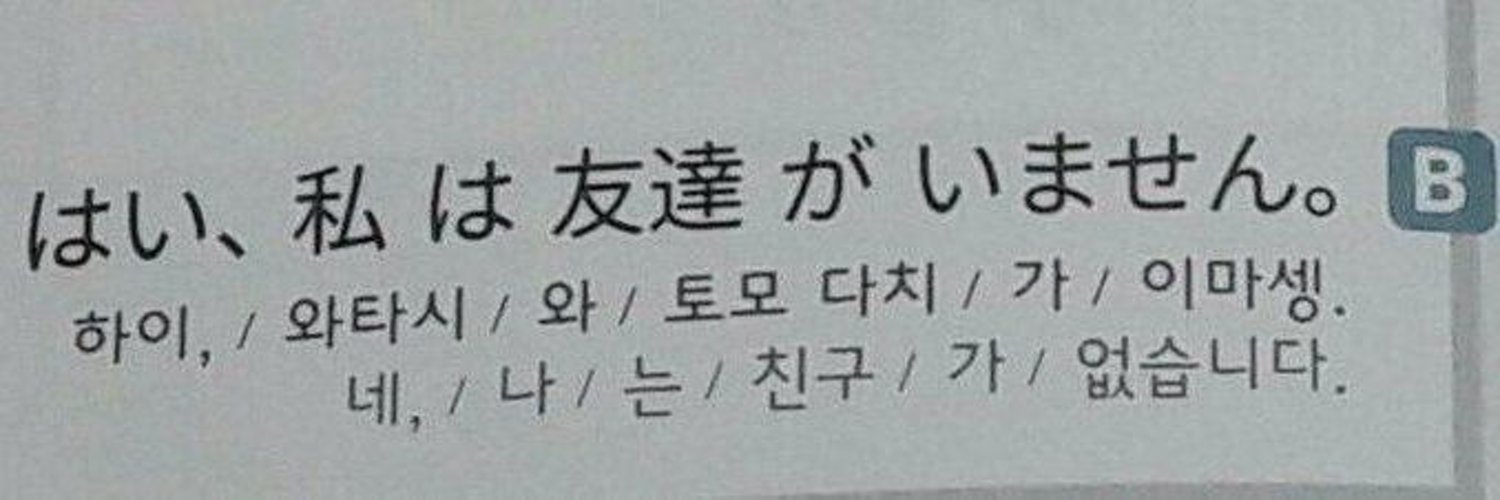 はい、私 は 友達 が いません。 B
하이, / 와타시 / 와 / 토모 다치 / 가 / 이마셍.
네, / 나 / 는 / 친구 / 가 / 없습니다.